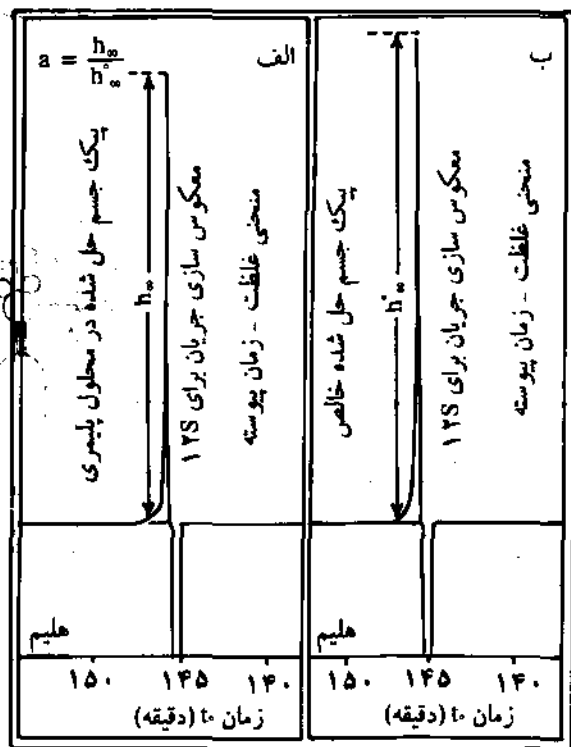 الف
a = h∞ / h°∞
پیک جسم حل شده در محلول پلیمری
h∞
معکوس سازی جریان برای ۱۲S
منحنی غلظت - زمان پیوسته
هلیم
۱۵۰ ۱۴۵ ۱۴۰
زمان t₀ (دقیقه)
ب
پیک جسم حل شده خالص
h°∞
معکوس سازی جریان برای ۱۲S
منحنی غلظت - زمان پیوسته
هلیم
۱۵۰ ۱۴۵ ۱۴۰
زمان t₀ (دقیقه)